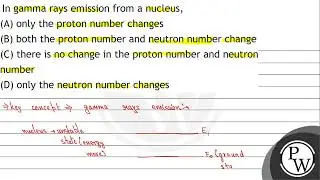 In gamma rays emission from a nucleus,
(A) only the proton number changes
(B) both the proton number and neutron number change
(C) there is no change in the proton number and neutron
number
(D) only the neutron number changes
⇒ key concept ⇒ gamma rays emission:-
nucleus → unstable E₁
state (energy
more) E₀ (ground
sta
PW